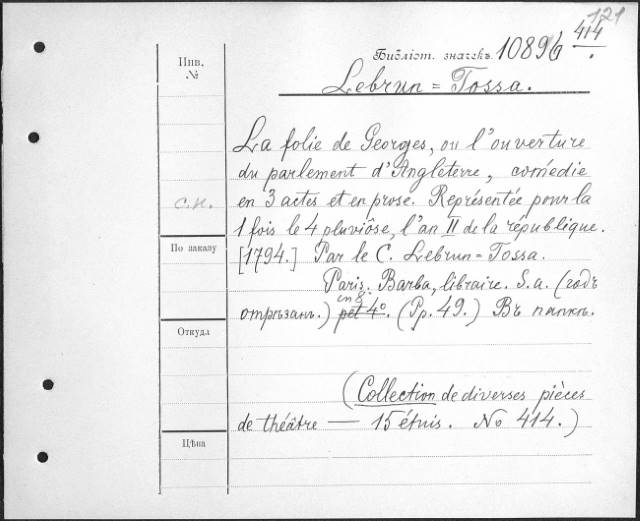 121
414
Библіот. значекъ. 10896
Инв. №
Lebrun = Tossa.
La folie de Georges, ou l'ouverture
du parlement d'Angleterre, comédie
en 3 actes et en prose. Représentée pour la
С.Н.
1 fois le 4 pluviôse, l'an II de la république.
По заказу
[1794.] Par le C. Lebrun = Tossa.
Paris. Barba, libraire. S.a. (годъ
in 8.
отрѣзанъ.) pet 4º. (Pp. 49.) Въ папкѣ.
Откуда
(Collection de diverses pièces
de théâtre — 15 étuis. No 414.)
Цѣна